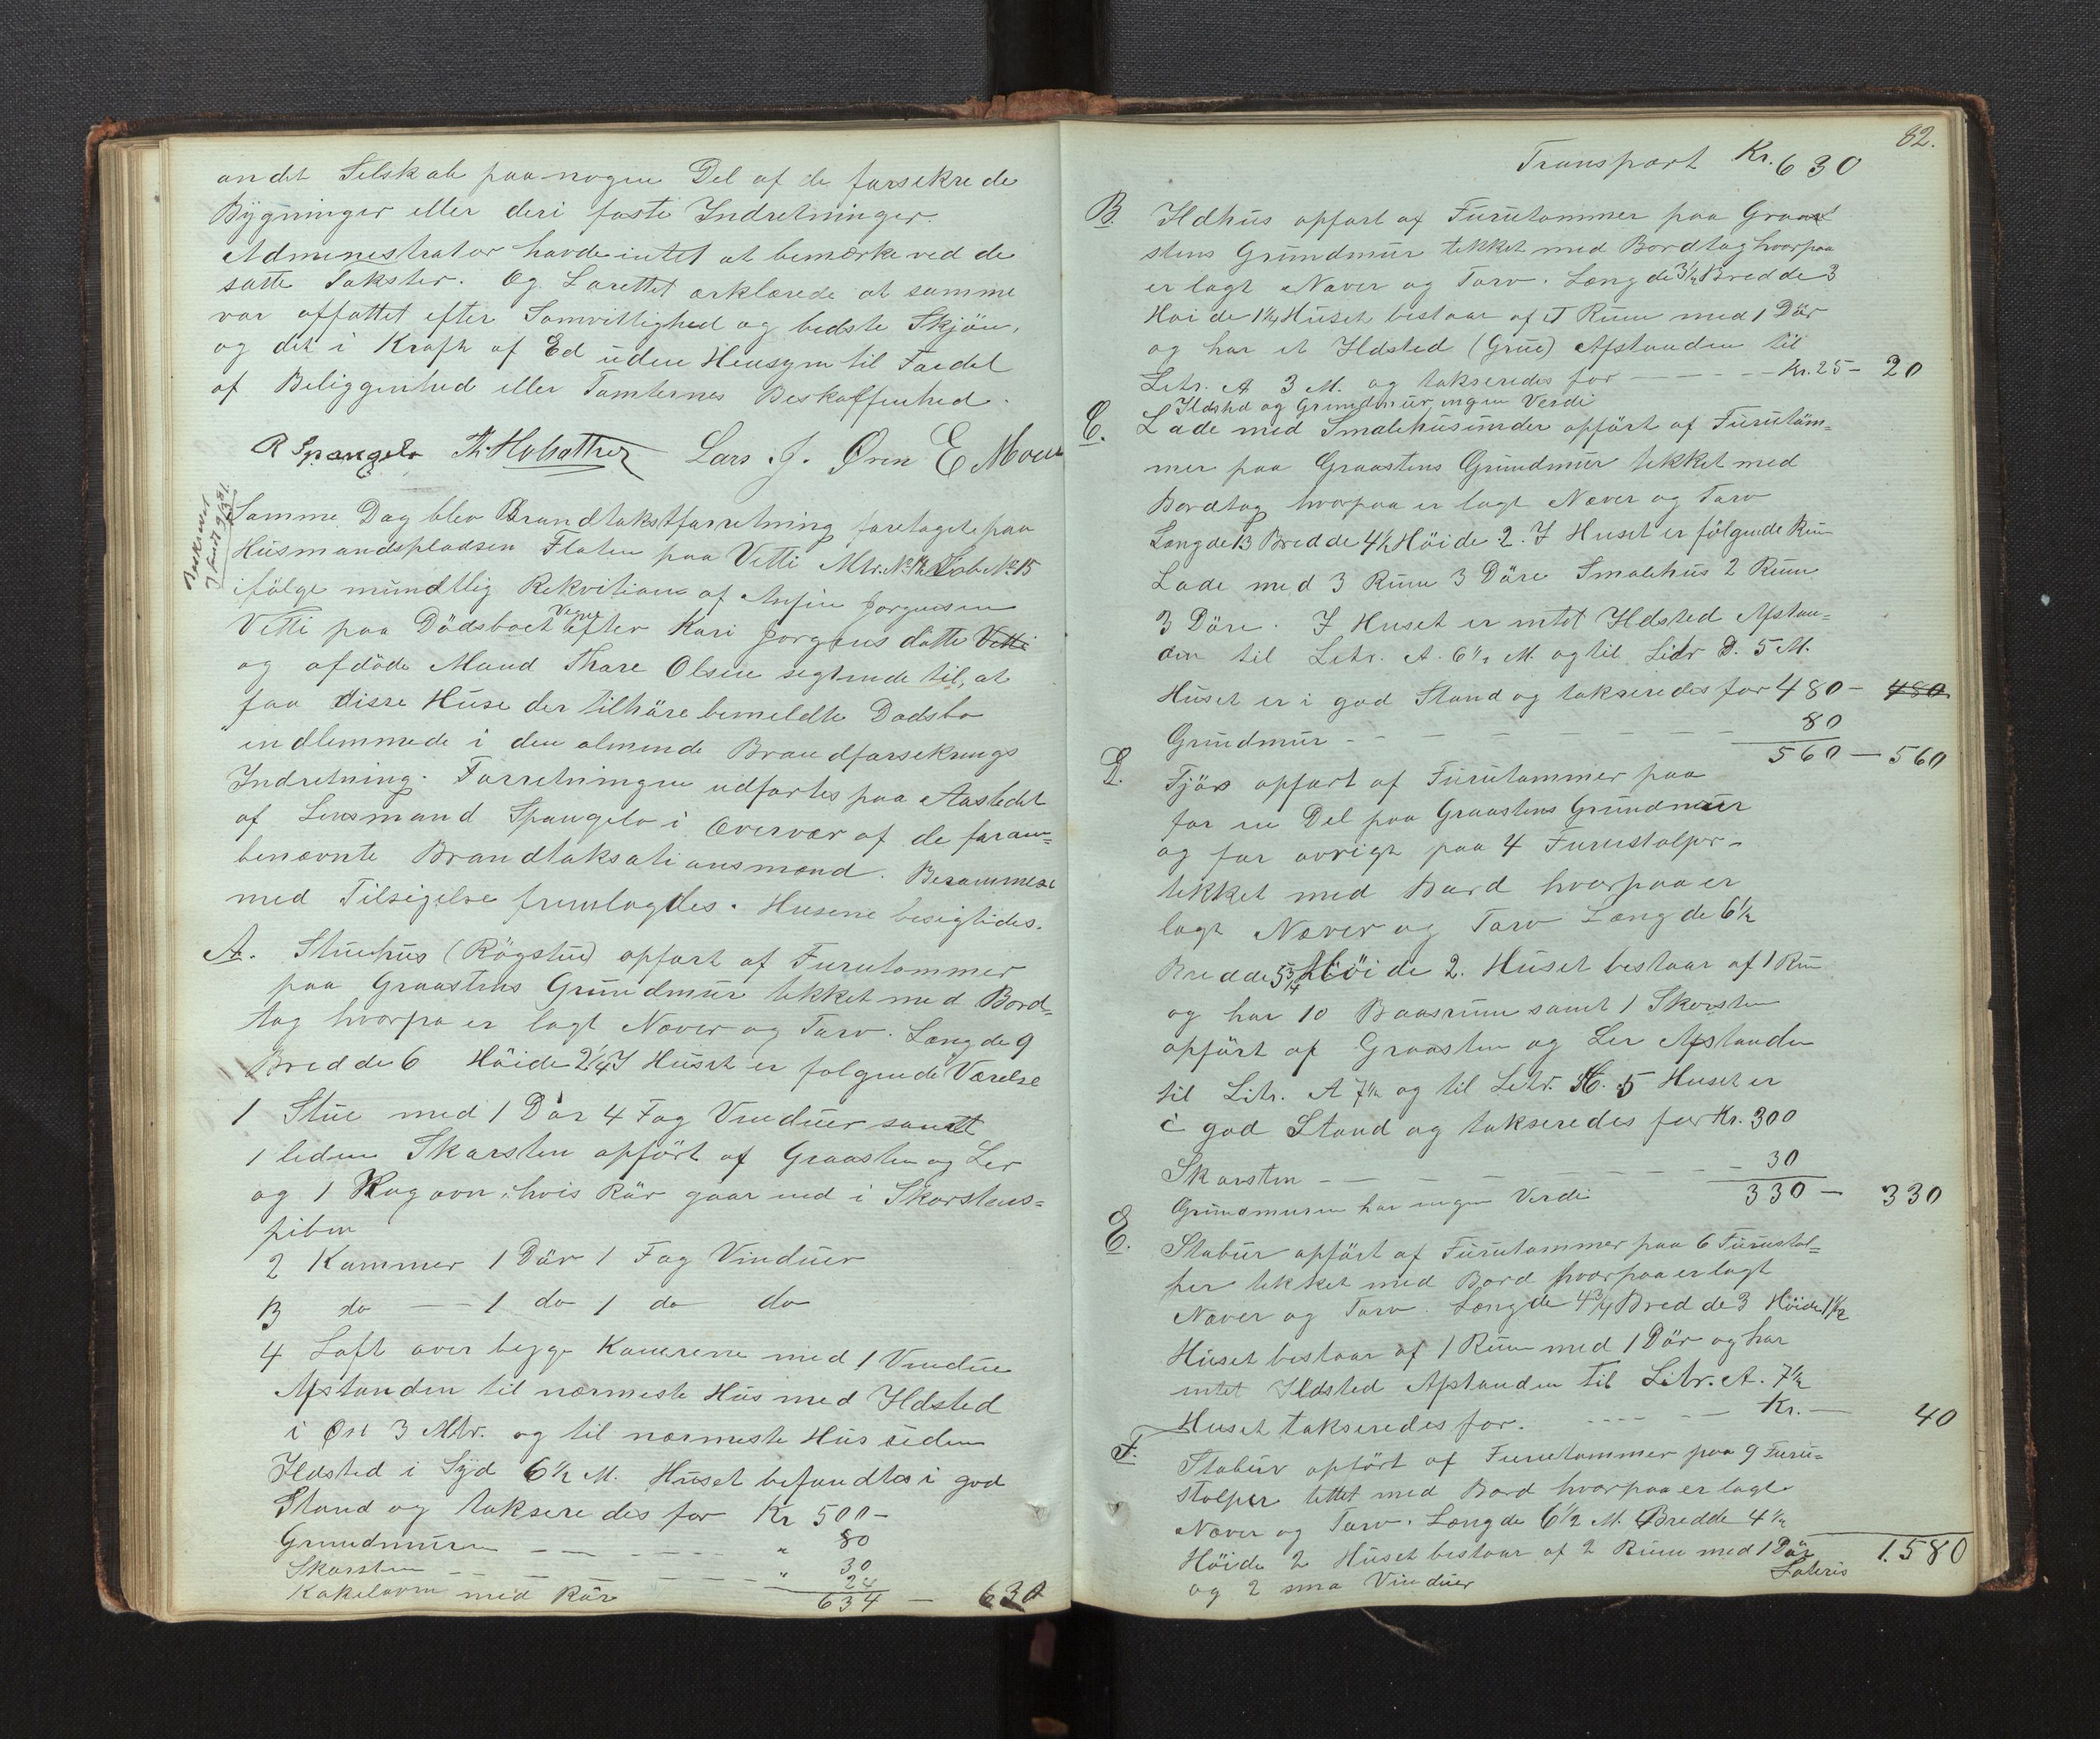 andet Selskab paa nogen Del af de forsikrede
Bygninger eller deri faste Indretninger.
Administrator havde intet at bemærke ved de
satte Takster. Og Larettet erklærede at samme
var affattet efter Samvittighed og bedste Skjön,
og det i Kraft af Ed uden Hensyn til Fordel
af Beliggenhed eller Tomternes Beskaffenhed.
R Spangelo Lars J. Øren E Moen
Beskrevet
Samme Dag blev Brandtakstforretning foretaget paa
Husmandspladsen Flaten paa Vetti Mtr. No Löb No 15
ifölge mundtlig Rekvition af Anfin Jorgensen
Vetti paa Dödsboet Vegne efter Kari Jorgensdatte Vetti
og afdöde Mand Thore Olsen sigtende til, at
faa disse Huse der tilhöre bemeldte Dödsbo
indlemmede i den almende Brandforsekrings
Indretning. Forretningen udfortes paa Aastedet
af Lensmand Spangelo i Overvær af de foran=
benævnte Brandtaksationsmænd. Berammelse
med Tilsigelse fremlagdes. Husene besigtides.
A. Stuehus (Rögstue) opfort af Furutommer
paa Graastens Grundmur tekket med Bord=
tag hvorpa er lagt Næver og Torv. Længde 9
Bredde 6 Höide 2 1/4 I Huset er folgende Værelse
1 Stue med 1 Dör 4 Fag Vinduer samt
1 ledem Skorsten opfört af Graasten og Ler
og 1 Kagovn, hvis Rör gaar ind i Skorstens=
piben
2 Kammer 1 Dör 1 Fag Vinduer
3 do — — 1 do 1 do do
4 Loft over begge Kamrene med 1 Vindue
Afstanden til nærmeste Hus med Ildsted
i Øst 3 Mtr. og til nærmeste Hus uden
Ildsted i Syd 6 1/2 M. Huset befandtes i god
Stand og takseredes for Kr 500 –
Grundmuren — — — " 80
Skorsten — — — " 30
Kakelovn med Rör 24
634 — 630
82.
Transport Kr. 630
B. Ildhus opfort af Furutommer paa Graa
stens Grundmur tekket med Bordtag hvorpaa
er lagt Næver og Torv. Længde 3 1/2 Bredde 3
Hoide 1 3/4 Huset bestaar af et Rum med 1 Dör
og har et Ildsted (Grue) Afstanden til
Litr. A 3 M. og takseredes for — — — Kr. 25 – 20
Ildsted og Grundmur ingen Verdi
C. Lade med Smalehus under opfört af Furutöm=
mer paa Graastens Grundmur tekket med
Bordtag hvorpaa er lagt Næver og Torv
Længde 13 Bredde 4 1/2 Höide 2. I Huset er fölgende Rum
Lade med 3 Rum 3 Döre Smalehus 2 Rum
3 Döre. I Huset er intet Ildsted Afstan=
den til Litr. A. 6 1/2 M. og til Lidr D. 5 M.
Huset er i god Stand og takseredes for 480 – 480
Grundmur — — — — — 80
560 — 560
D. Fjös opfort af Furutommer paa
for en Del paa Graastens Grundmur
og for ovrigt paa 4 Furustolper –
tekket med Bord hvorpaa er
lagt Næver og Torv Længde 6 1/2
Bredde 5 3/4 Höide 2. Huset bestaar af 1 Rum
og har 10 Baasrum samt 1 Skorsten
opfört af Graasten og Ler Afstanden
til Litr. A 7 1/2 og til Litr. 5 Huset er
i god Stand og takseredes for Kr. 300
Skorsten — — — — — 30
Grundmuren har ingen Verdi 330 — 330
E. Stabur opfört af Furutommer paa 6 Furustol=
per tekket med Bord hvorpaa er lagt
Næver og Torv. Længde 4 3/4 Bredde 3 Höide 1 1/2
Huset bestaar af 1 Rum med 1 Dör og har
intet Ildsted Afstanden til Litr. A. 7 1/2
Huset takseredes for. — — — Kr. — 40
F. Stabur opfört af Furutommer paa 9 Furu=
stolper tettet med Bord hvorpaa er lagt
Næver og Torv. Længde 6 1/2 M. Bredde 4 1/2
Höide 2 Huset bestaar af 2 Rum med 1 Dör
og 2 sma Vinduer Lateris 1.580